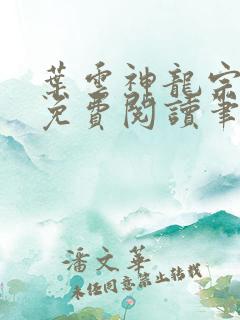 葉雲神龍宗
免費閱讀筆
潘文華
未經同意禁止轉載